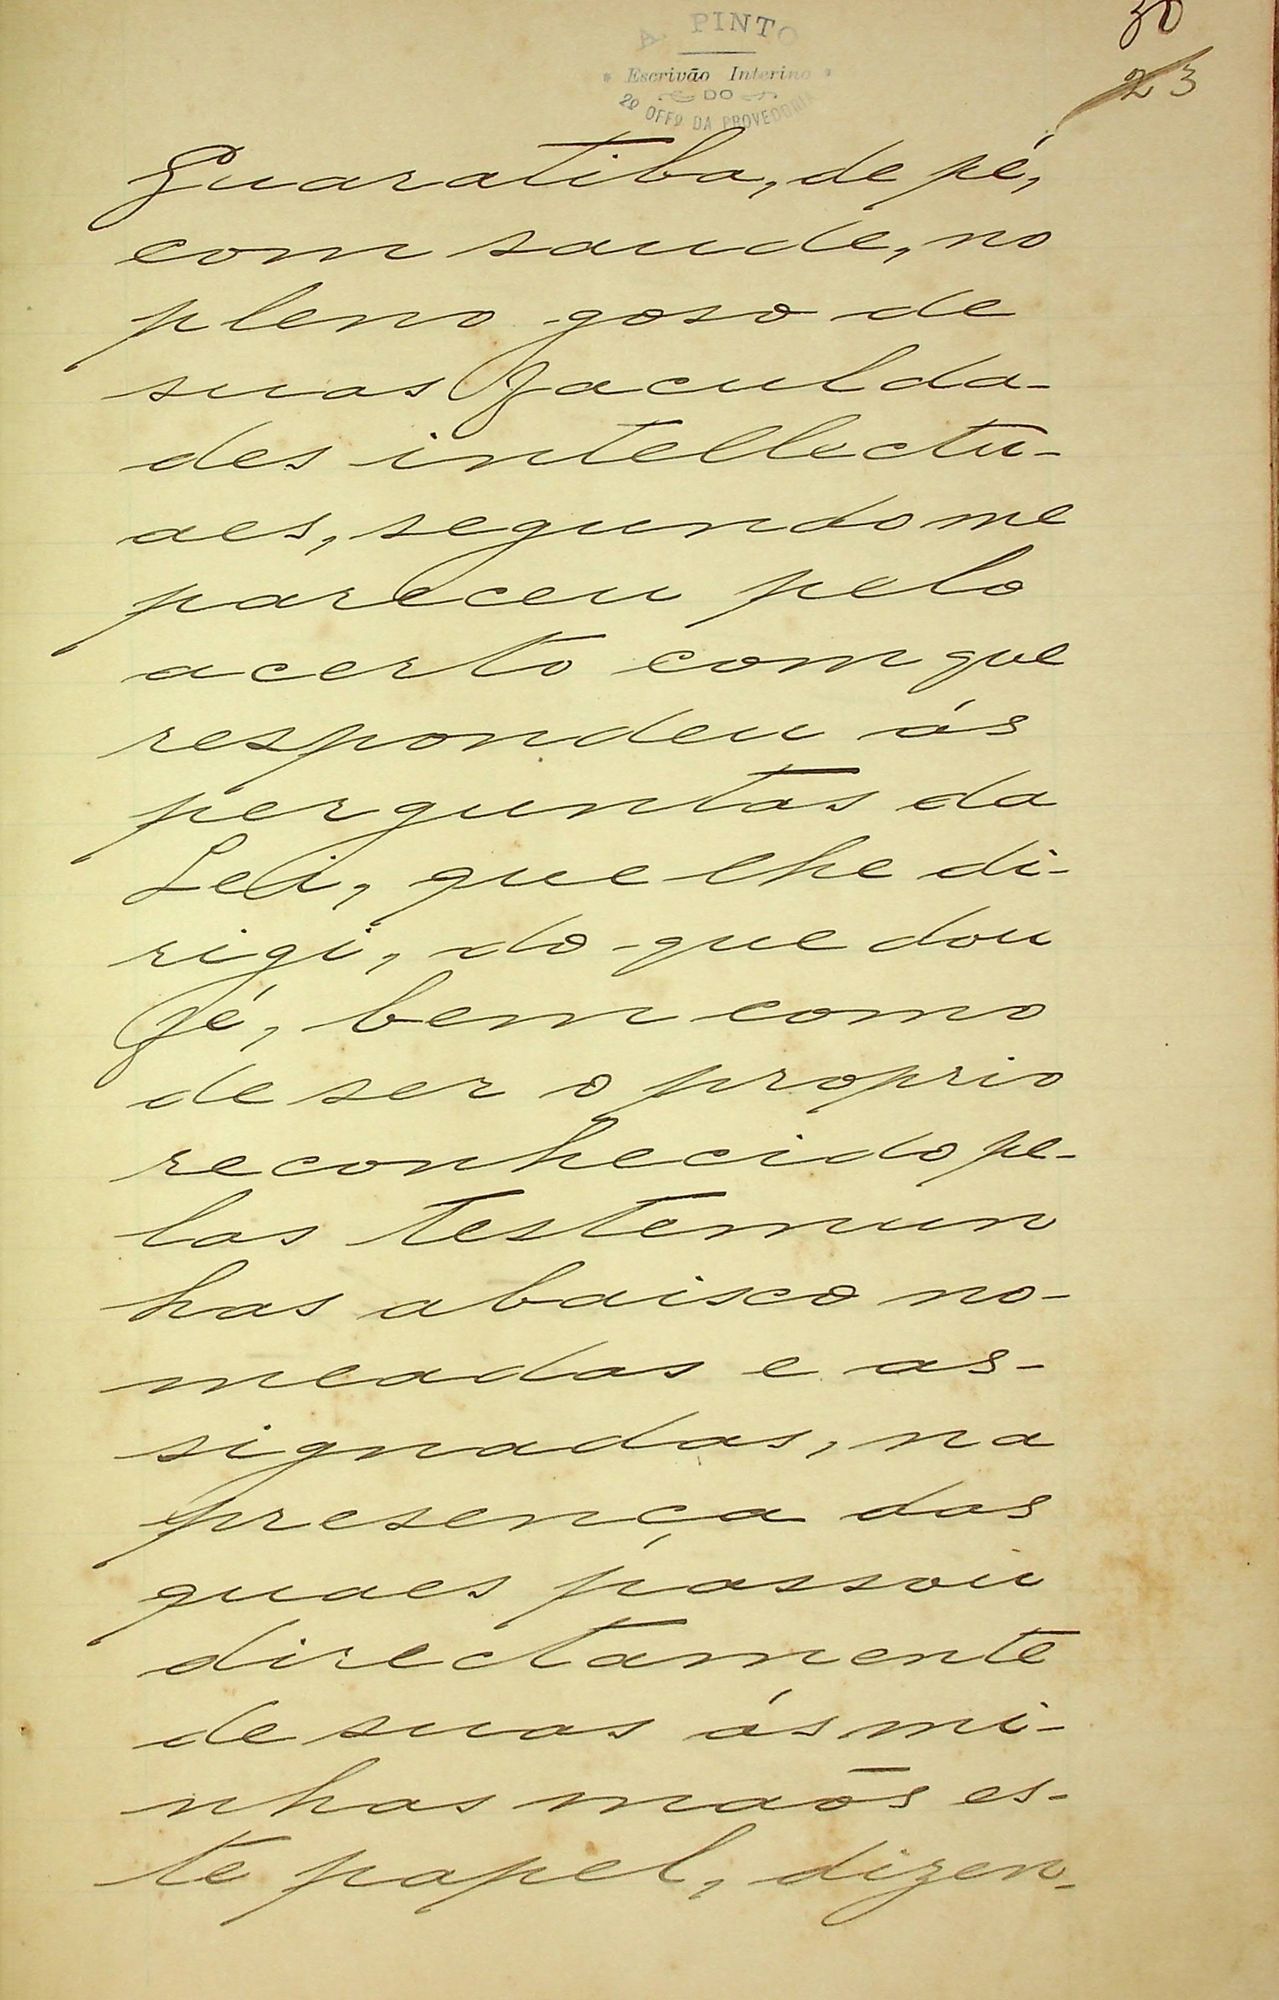 30
23
A. PINTO
Escrivão Interino
DO
2º OFFº DA PROVEDORIA
Guaratiba, de pé,
com saude, no
pleno goso de
suas faculda-
des intellectu-
aes, segundo me
pareceu pelo
acerto com que
respondeu ás
perguntas da
Lei, que lhe di-
rigi, do que dou
fé, bem como
de ser o proprio
reconhecido pe-
las testemun
has abaixo no-
meadas e as-
signadas, na
presença das
quaes passou
directamente
de suas ás mi-
nhas maõs es-
te papel, dizen-